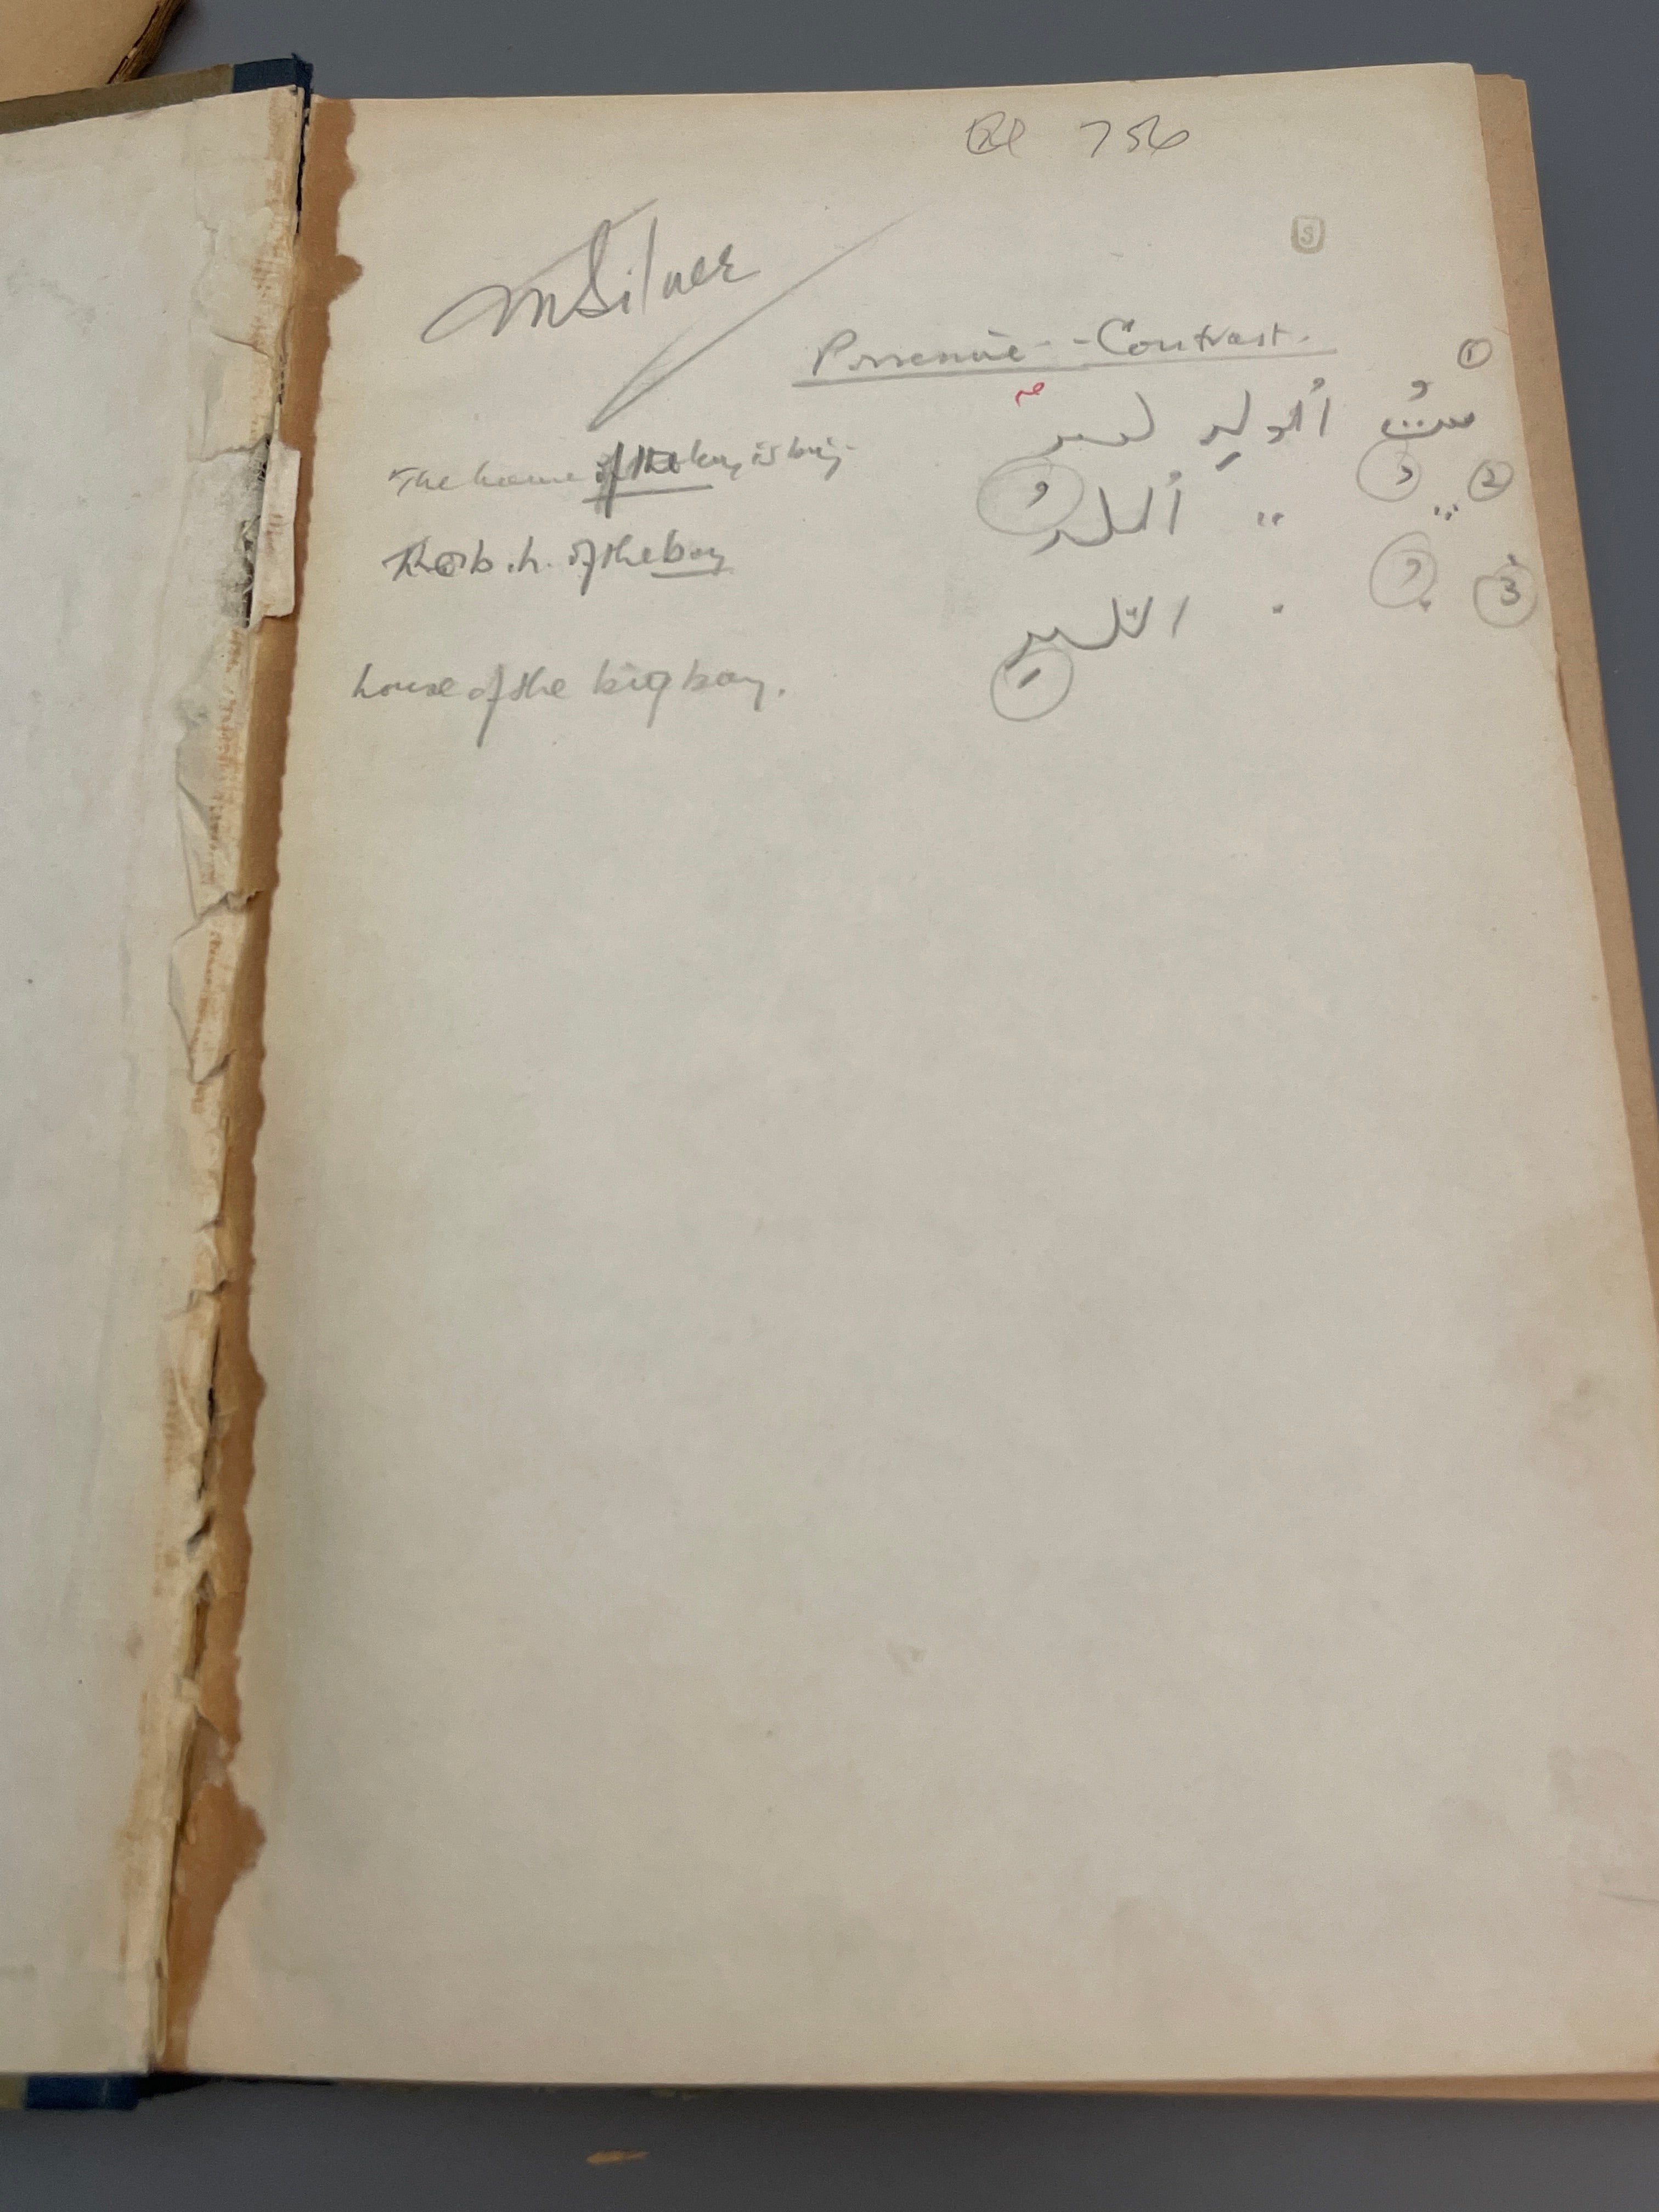 756
M Silver
S
Possessive - - Contrast.
①
The house of the boy is big.
بيتُ ألولدِ كبير
②
The b. h. of the boy
" " ألكبير
و
③
house of the big boy.
الكبير